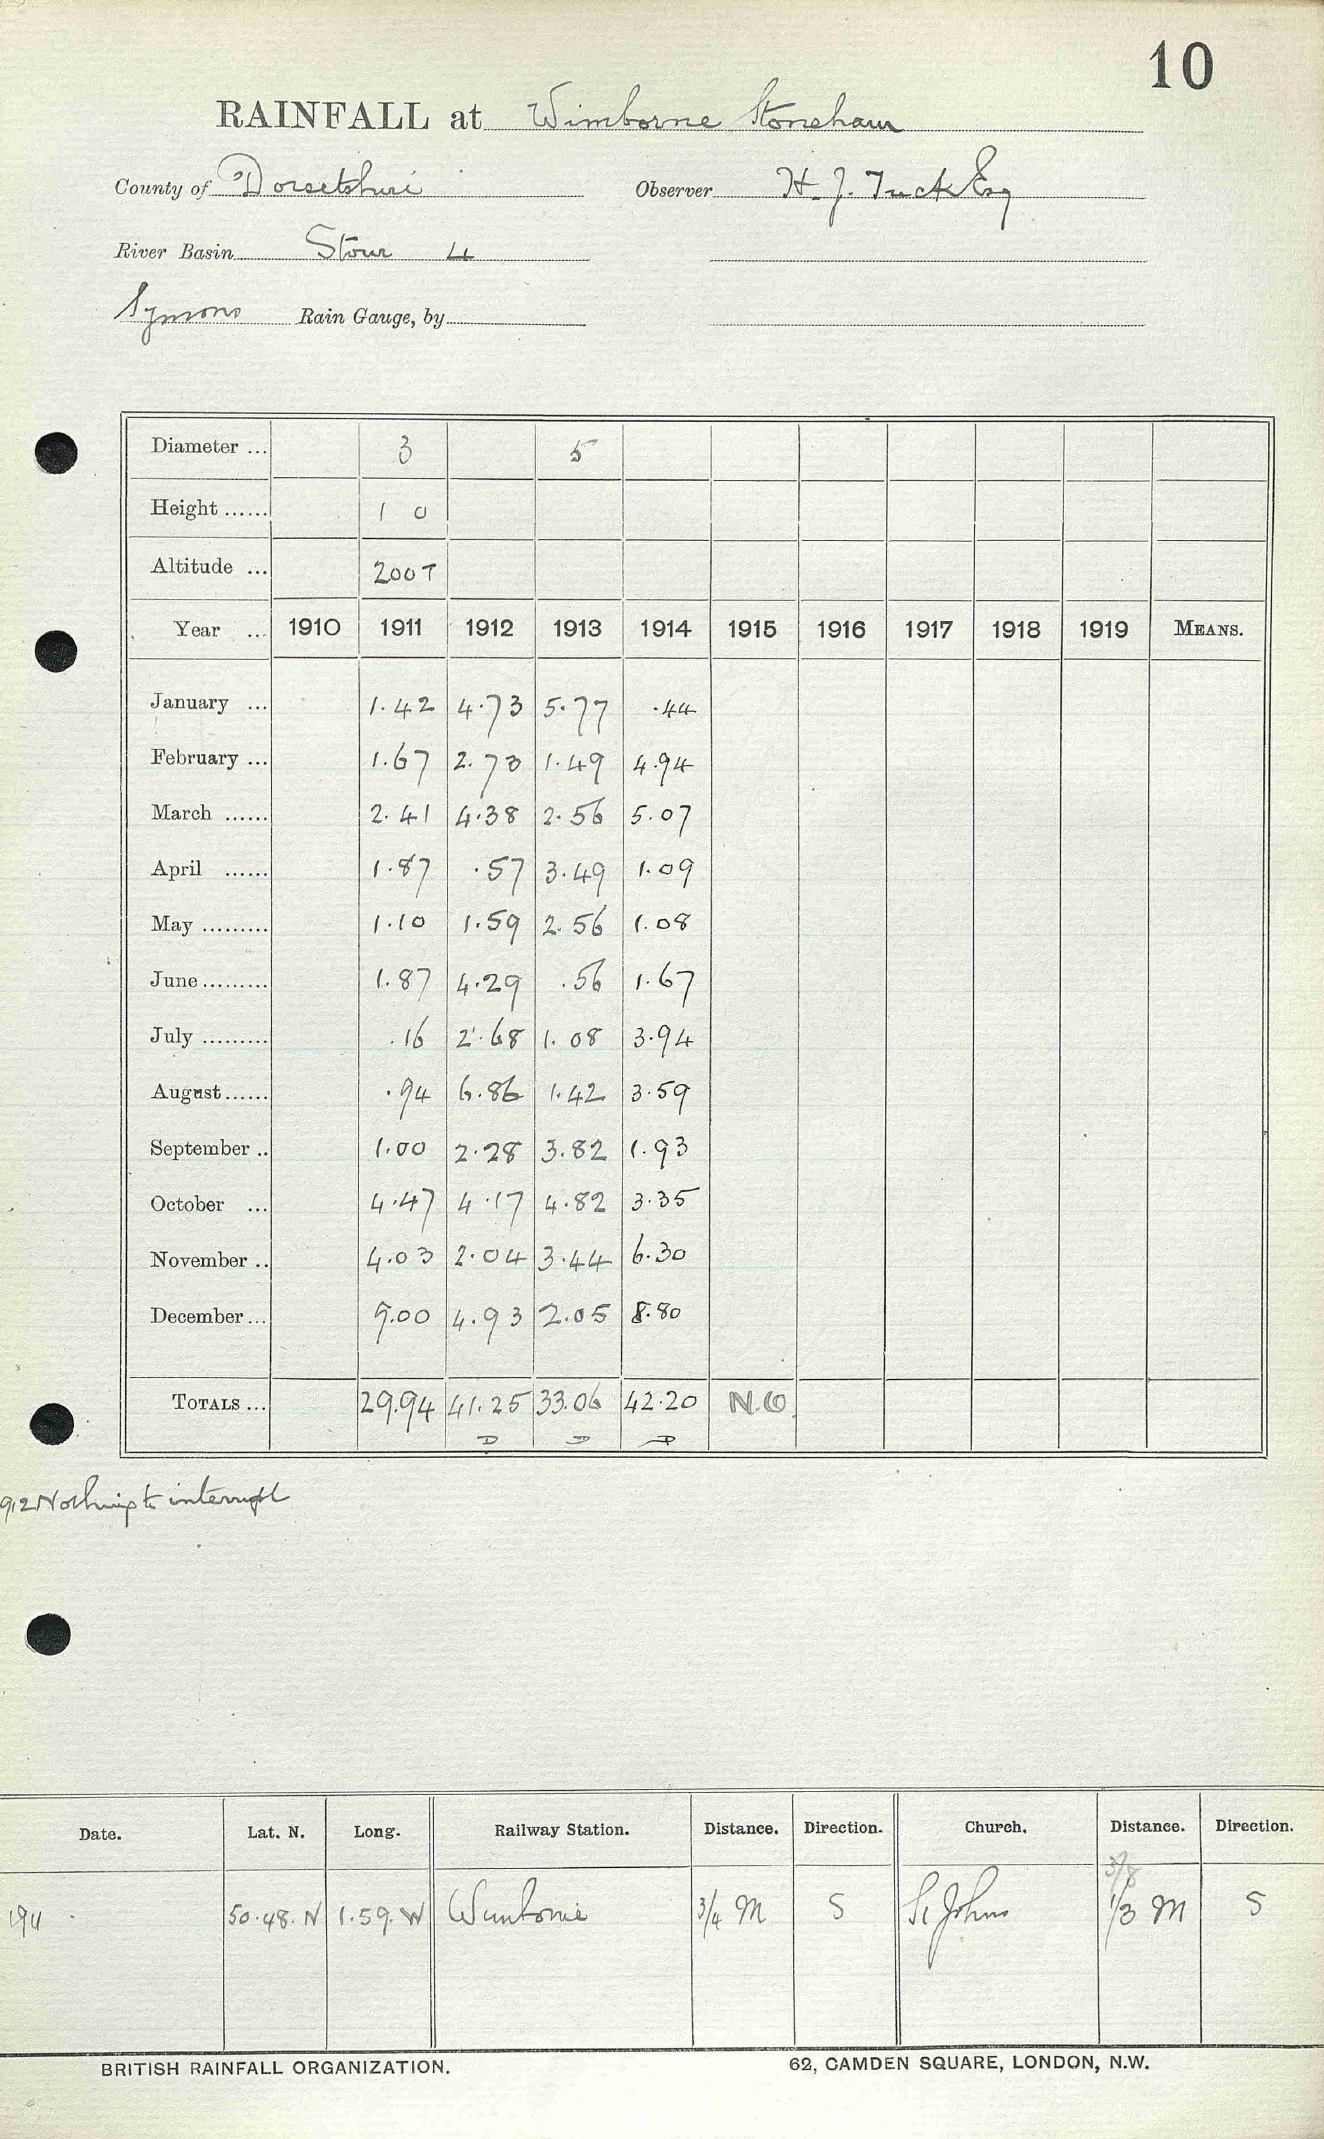 10
RAINFALL at Wimborne Stoneham
County of Dorsetshire Observer H. J. Tuck Esq
River Basin Stour 4
Symons Rain Gauge, by
Diameter ... 3 5
Height ...... 1 0
Altitude ... 200T
Year ... 1910 1911 1912 1913 1914 1915 1916 1917 1918 1919 MEANS.
January ... 1.42 4.73 5.77 .44
February ... 1.67 2.73 1.49 4.94
March ...... 2.41 4.38 2.56 5.07
April ...... 1.87 .57 3.49 1.09
May ......... 1.10 1.59 2.56 1.08
June ......... 1.87 4.29 .56 1.67
July ......... .16 2.68 1.08 3.94
August ...... .94 6.86 1.42 3.59
September .. 1.00 2.28 3.82 1.93
October ... 4.47 4.17 4.82 3.35
November .. 4.03 2.04 3.44 6.30
December ... 9.00 4.93 2.05 8.80
TOTALS ... 29.94 41.25 33.06 42.20 N.O.
D D D
912 Nothing to interrupt
Date. Lat. N. Long. Railway Station. Distance. Direction. Church. Distance. Direction.
3/8
1911 50.48.N 1.59.W Wimborne 3/4 M S St Johns 1/3 M S
BRITISH RAINFALL ORGANIZATION. 62, CAMDEN SQUARE, LONDON, N.W.